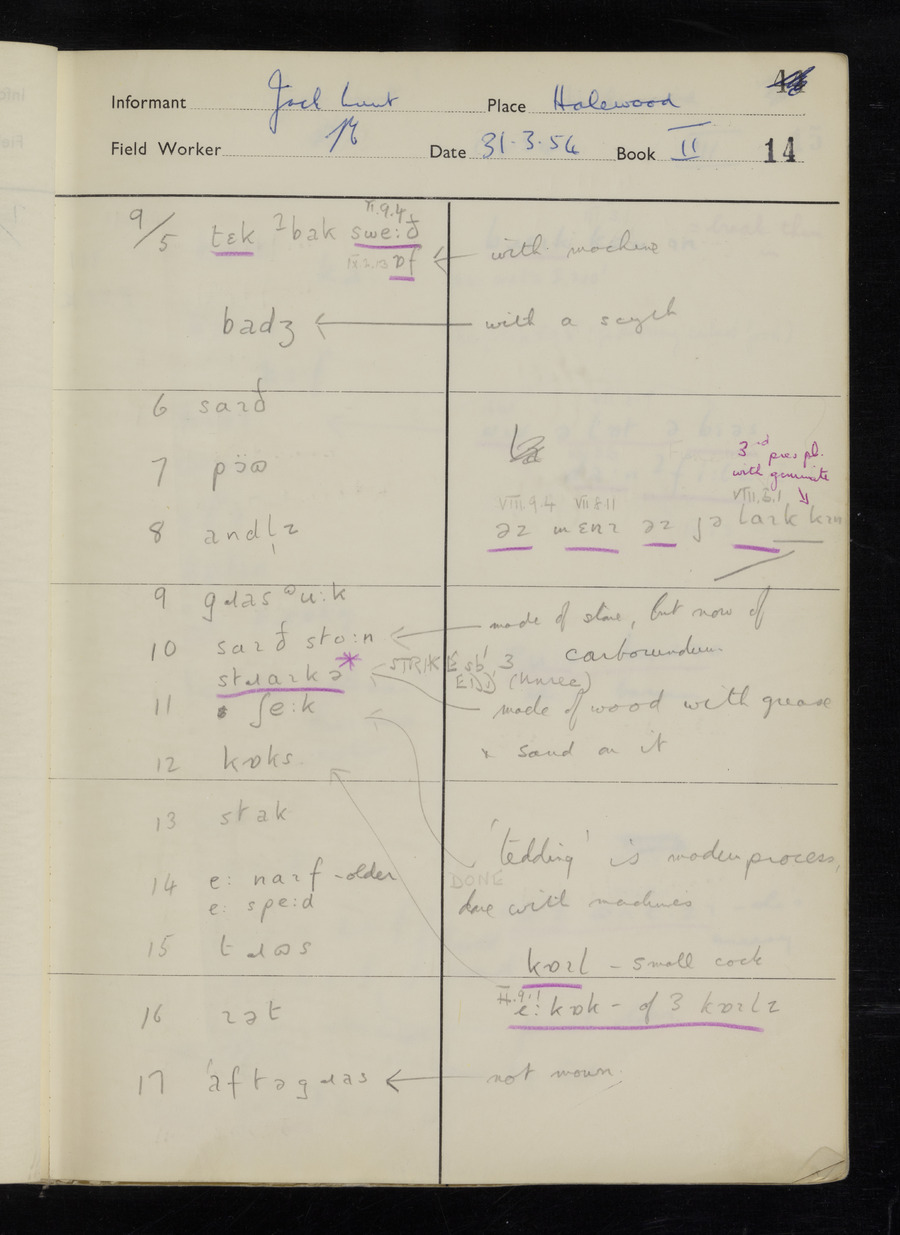 Informant Jack Lunt Place Halewood
Field Worker Date 31.3.54 Book II 14
9/5 tɛk ʔbak sweːð VI.9.4
ɒf
with machine
badʒ
with a scyth
6 saɪð
7
8 andl̩z
3rd pres pl.
with geminate
VIII.9.4 VII.8.11 VIII.3.1
əz mɛnɪ əz jə laɪk
9 gɹas ᵊuːk
10 saɪð stoːn
made of stone, but now of
carborundum
stɹaɪkə *
STRIKE sb¹ 3
EDD (unrec)
11 ʃeːk
made of wood with grease
& sand on it
12 kɒks
13 stak
'tedding' is modern process,
DONE
done with machines
14 eː naɪf - older
eː speːd
15 tɹʊs
kɒɪl - small cock
16 ɪət
II.9.1
eː kɒk - of 3 kɒɪlz
17 ˈaftəgɹas
not mown